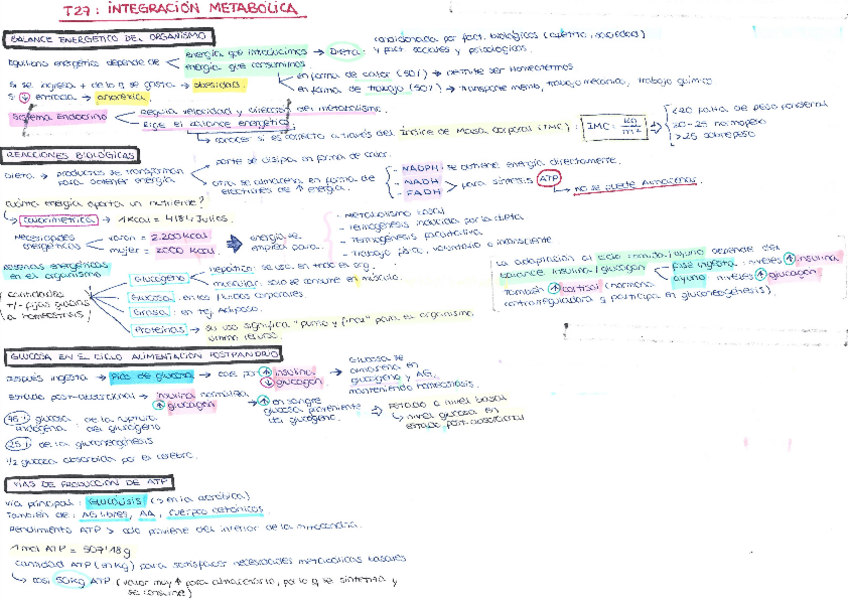 T27: INTEGRACIÓN METABÓLICA
BALANCE ENERGÉTICO DEL ORGANISMO
Equilibrio energético depende de
energía que introducimos → DIETA
energía que consumimos
condicionada por fact. biológicos
y fact. sociales y psicológicos.
en forma de calor (50%) → permite ser homeotermos
en forma de trabajo (50%) → transporte memb, trabajo mecánico, trabajo químico
Si se ingresa + de lo q se gasta → obesidad.
Si ↓ entrada → anorexia.
Sistema Endocrino
Regula velocidad y dirección del metabolismo.
Rige el balance energético
conocer si es correcto a través del Índice de Masa Corporal (IMC):
IMC:
<20 falta de peso ponderal
20-25 normopeso
>25 sobrepeso
REACCIONES BIOLÓGICAS
Dieta → productos se transforman
para obtener energía
parte se disipa en forma de calor.
otra se almacena en forma de
electrones de ↑ energía.
- NADPH: se obtiene energía directamente.
- NADH
- FADH
para síntesis ATP
→ no se puede almacenar.
cuánta energía aporta un nutriente?
→ 1 Kcal = 4184 Julios.
Necesidades
energéticas
varón = 2.200 kcal
mujer = 2000 kcal
energía se
emplea para
- Metabolismo basal
- Termogénesis inducida por la dieta
- Termogénesis facultativa
- Trabajo físico, voluntario e inconsciente
Reservas energéticas
en el organismo
Cantidades
+/- fijas gracias
a homeostasis
Glucógeno
hepático: se usa en todo el org.
muscular: solo se consume en músculo.
Glucosa: en los líquidos corporales.
Grasa: en Tej Adiposo.
Proteínas → su uso significa
para el organismo
último recurso.
La adaptación al ciclo ingesta/ayuno depende del
balance insulina/glucagón
fase ingesta: niveles ↑ insulina
ayuno: niveles ↑ glucagón
También ↑ cortisol (hormona
contrarreguladora q participa en gluconeogénesis).
GLUCOSA EN EL CICLO ALIMENTACIÓN POSTPANDRIO
Después ingesta → Pico de glucosa → cae por ↑ insulina
↓ glucagón
→ Glucosa se
almacena en
glucógeno y AG,
manteniendo homeostasis.
Estado post-absorcional → insulina normaliza
↑ glucagón
→ ↑ en sangre
glucosa proveniente
del glucógeno.
⇒ Retorno a nivel basal
↳ nivel glucosa en
estado post-absorcional
75% glucosa: de la ruptura
endógena del glucógeno
25% de la gluconeogénesis
1/2 glucosa absorbida por el cerebro.
VÍAS DE PRODUCCIÓN DE ATP
Vía principal: GLUCÓLISIS (> en la aeróbica)
También de: AG libres, AA, cuerpos cetónicos
Rendimiento ATP > cdo proviene del interior de la mitocondria.
1 mol ATP = 507'18 g
cantidad ATP (en kg) para satisfacer necesidades metabólicas basales
↳ casi 50kg ATP (valor muy ↑ para almacenarlo, por lo q se sintetiza y
se consume)